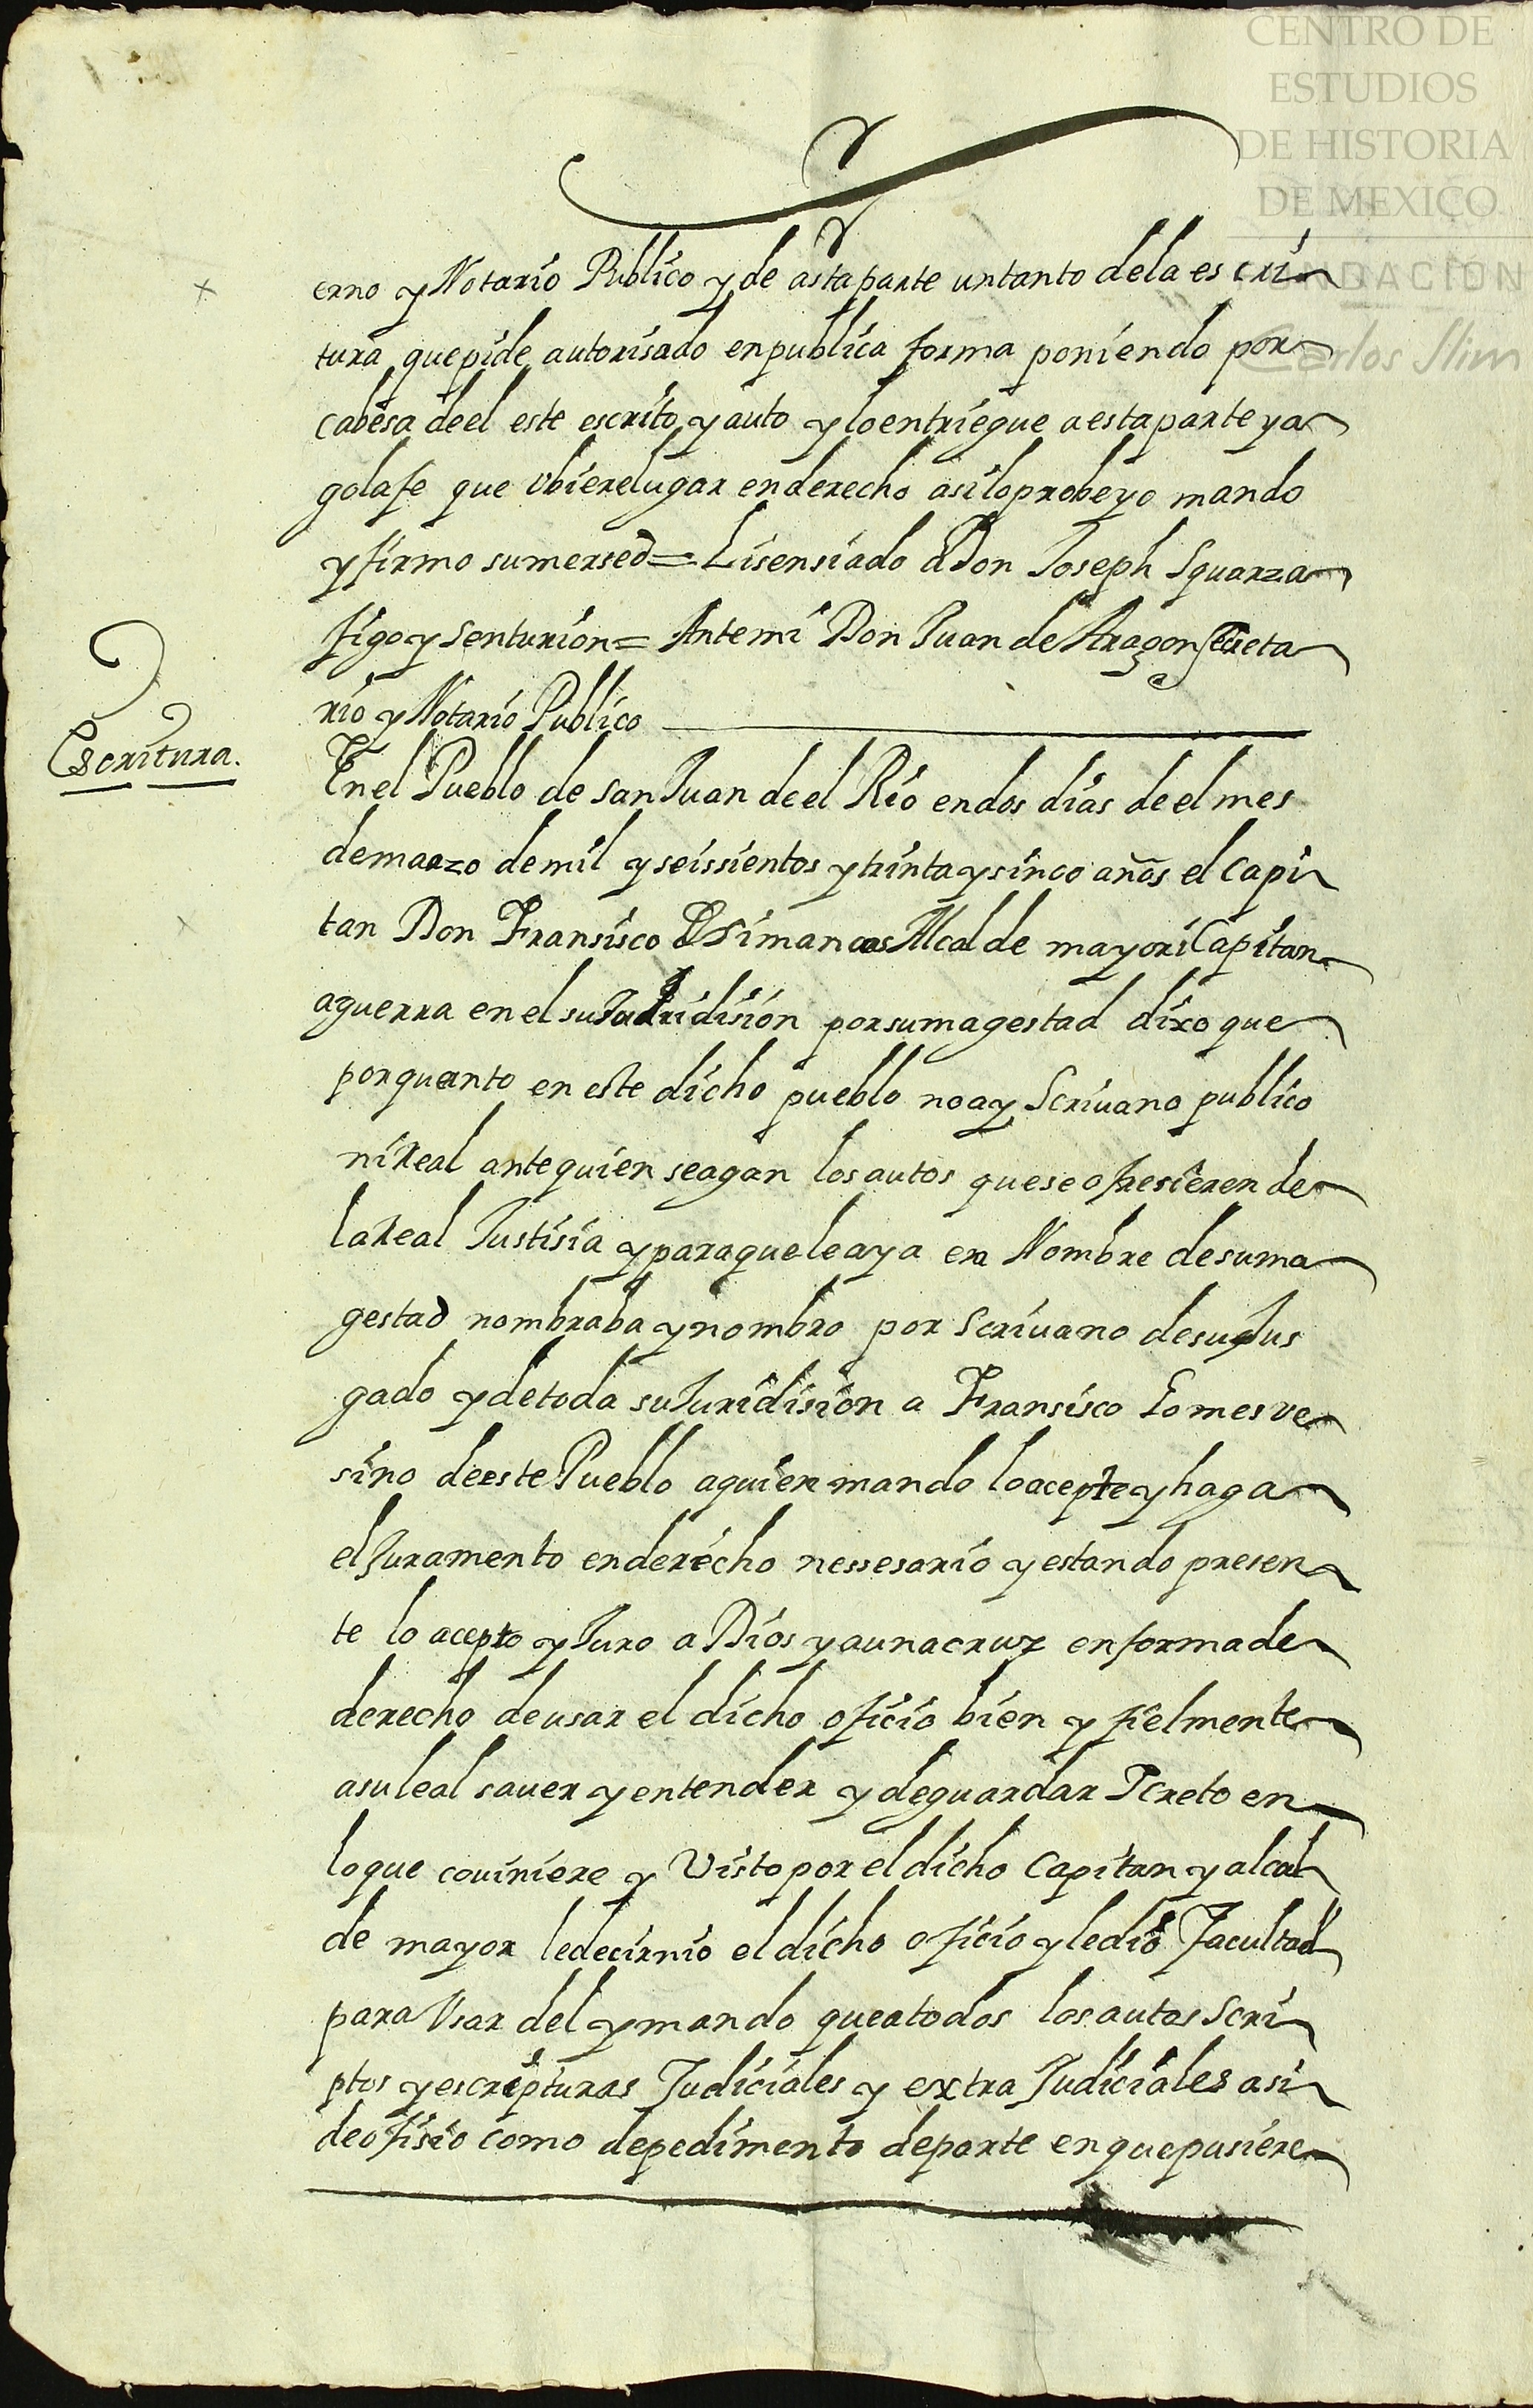 CENTRO DE
ESTUDIOS
DE HISTORIA
DE MEXICO
FUNDACION
Carlos Slim
erno y Notario Publico y de astaparte untanto dela escri
tura quepide autorisado enpublica forma poniendo por
cabesa deel este escrito y auto y loentriegue aestaparte ya
golafe que Vbierelugar enderecho asiloprobeyo mando
y firmo sumersed= Lisensiado Don Joseph Squarza
figo y Senturion= Antemi Don Juan de Aragon Secreta
rio y Notario Publico
Escritura.
En el Pueblo de San Juan de el Rio endos dias de el mes
demarzo demil y seissientos ytrinta ysinco años el capi
tan Don Fransisco de Simancas Alcalde mayor i Capitan
aguerra en el su Juridision porsumagestad dixo que
porquanto en este dicho pueblo no ay Scrivano publico
niReal antequien seagan los autos queseofresieren de
laReal Justisia yparaqueleaya en Nombre desuma
gestad nombraba ynombro por Scrivano desuJus
gado ydetoda suJuridision a Fransisco Gomes ve
sino deeste Pueblo aquien mando loacepte yhaga
elJuramento enderecho nessesario yestando presen
te lo acepto yJuro a Dios yaunacruz enformade
derecho deusar el dicho oficio bien y fielmente
asuleal saver yentender y deguardar Screto en
loque coviniere y Visto por eldicho Capitan yalcal
de mayor ledecirnio eldicho oficio yledio Facultad
para Vsar del ymando queatodos losautos Scri
ptos yescripturas Judiciales y extra Judiciales asi
deofisio como depedimento departe enquepusiere